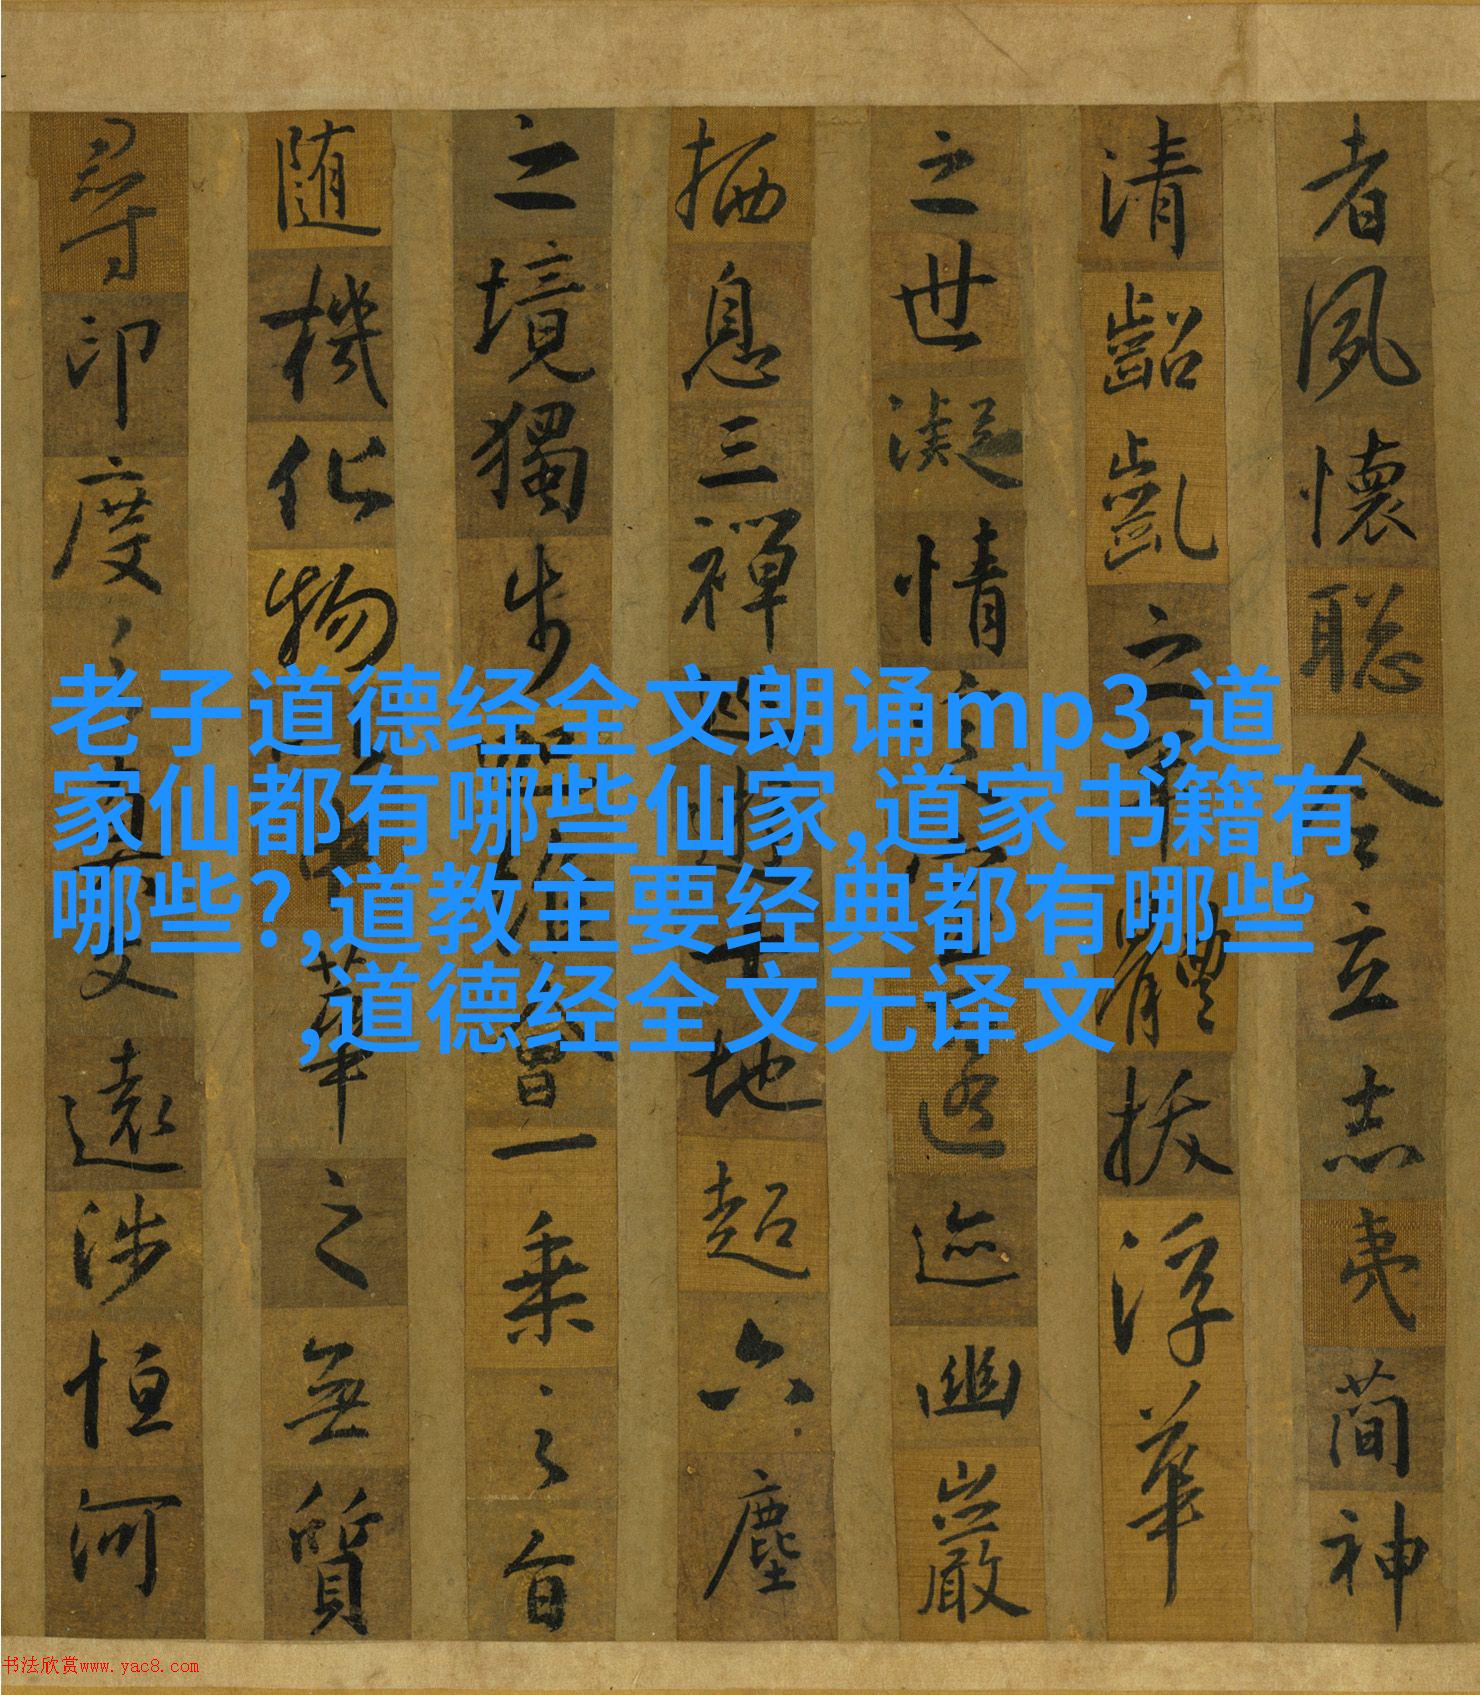 者夙懷聡令立志夷蕳神
清齠齓之年體拔浮華
之世凝情定室匿迹幽巖
栖息三禪巡遊十地超六塵
之境獨步會一乘之旨
随機化物中華之無質
尋印度之文遠涉恒河
老子道德经全文朗诵mp3,道
家仙都有哪些仙家,道家书籍有
哪些?,道教主要经典都有哪些
,道德经全文无译文
书法欣赏www.yac8.com